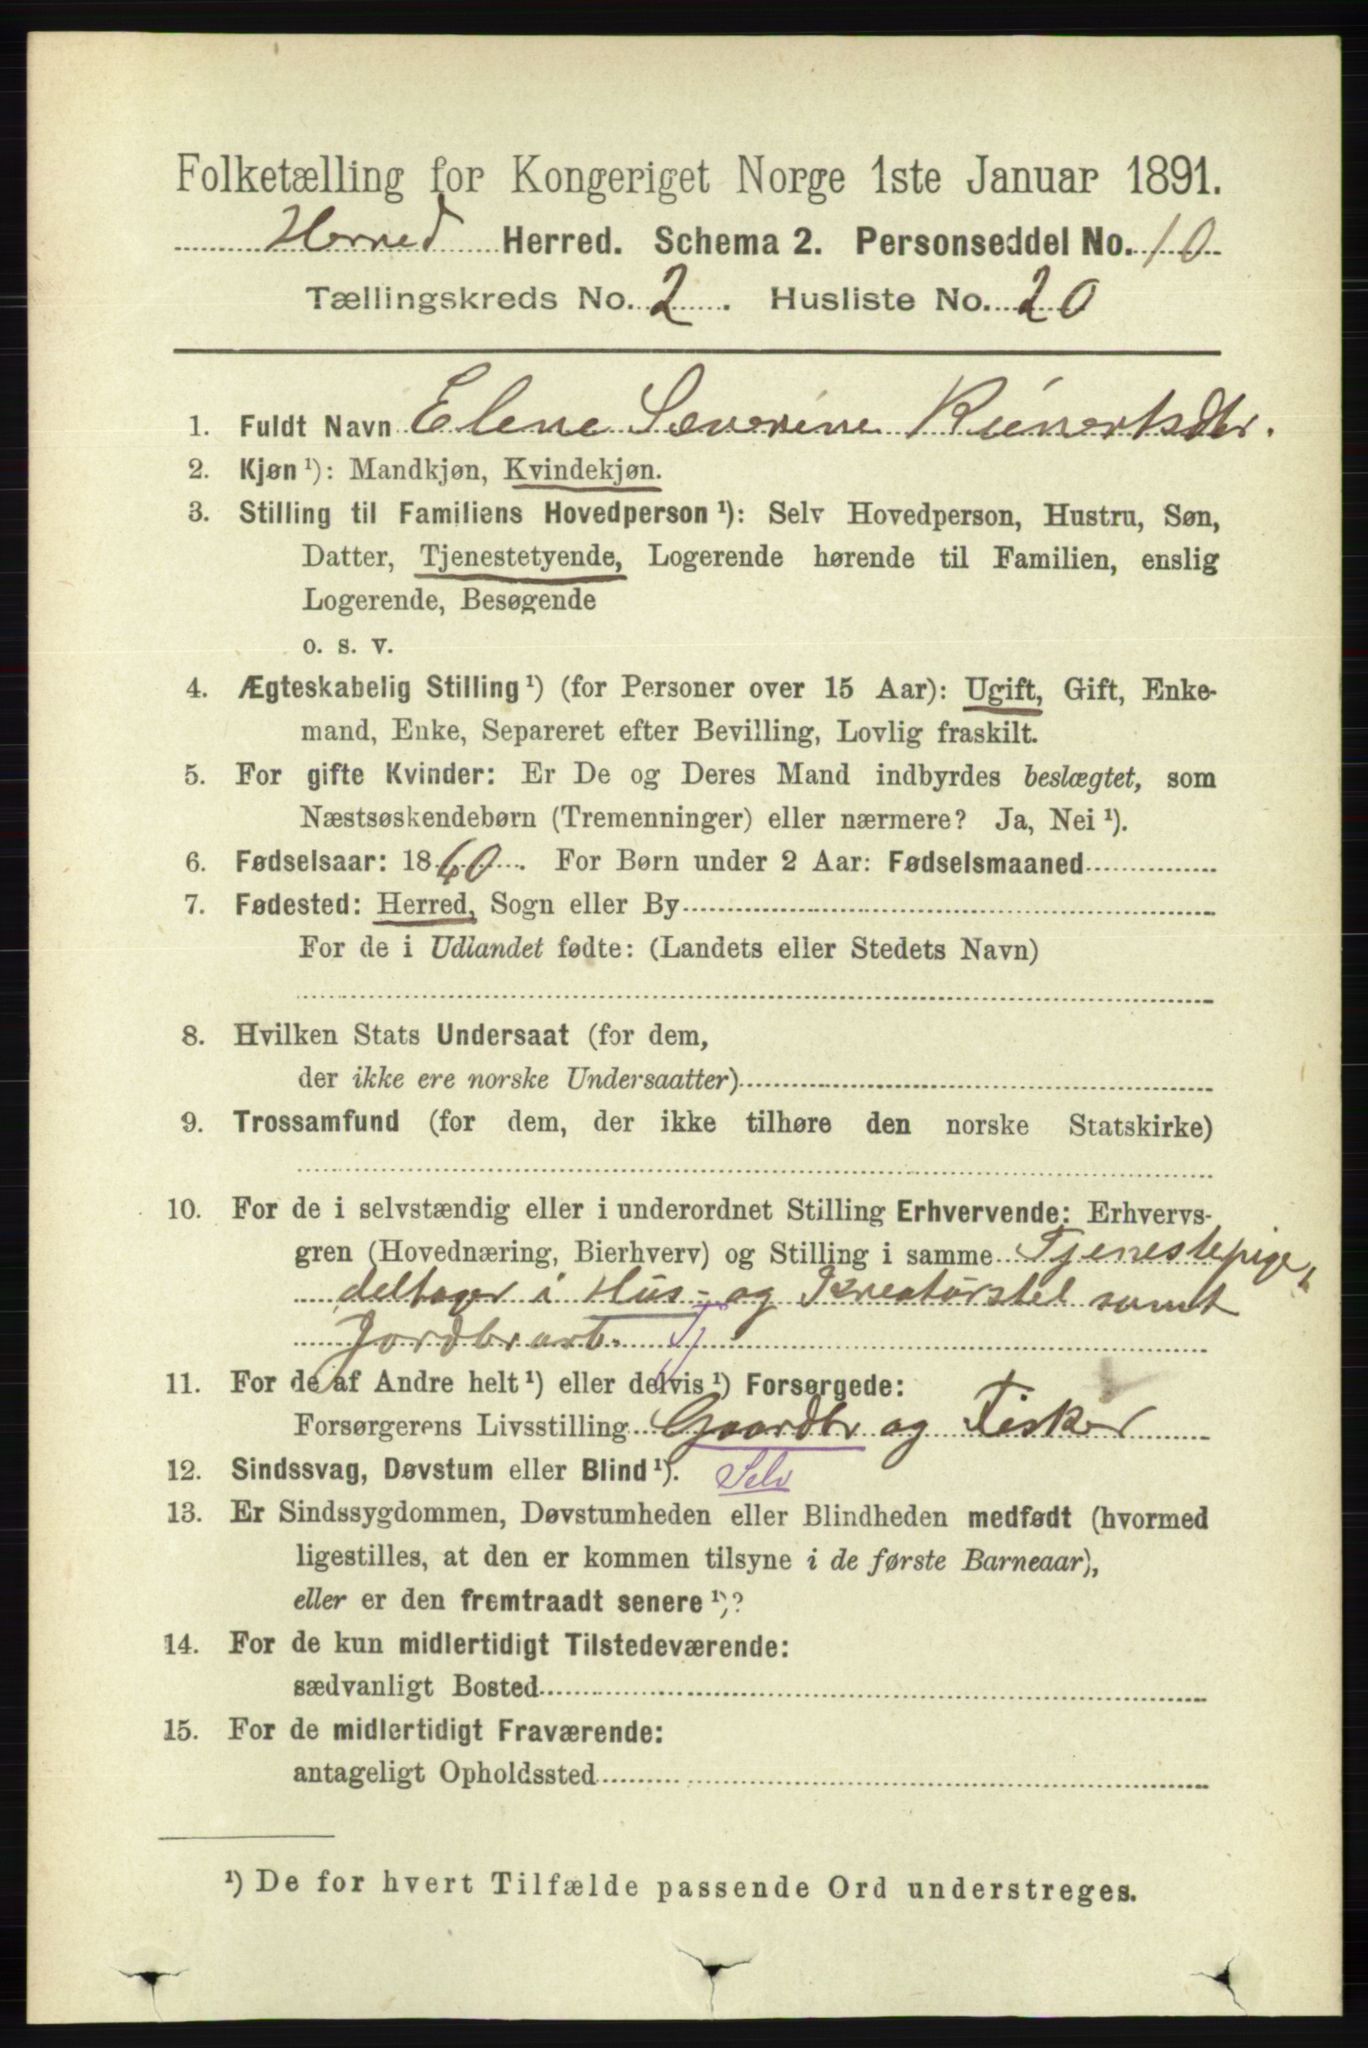 Folketælling for Kongeriget Norge 1ste Januar 1891.
Herred Herred. Schema 2. Personseddel No. 10
Tællingskreds No. 2. Husliste No. 20
1. Fuldt Navn Elene Severine Reinertsdtr.
2. Kjøn ¹): Mandkjøn, Kvindekjøn.
3. Stilling til Familiens Hovedperson ¹): Selv Hovedperson, Hustru, Søn,
Datter, Tjenestetyende, Logerende hørende til Familien, enslig
Logerende, Besøgende
o. s. v.
4. Ægteskabelig Stilling ¹) (for Personer over 15 Aar): Ugift, Gift, Enke-
mand, Enke, Separeret efter Bevilling, Lovlig fraskilt.
5. For gifte Kvinder: Er De og Deres Mand indbyrdes beslægtet, som
Næstsøskendebørn (Tremenninger) eller nærmere? Ja, Nei ¹).
6. Fødselsaar: 1860. For Børn under 2 Aar: Fødselsmaaned
7. Fødested: Herred, Sogn eller By
For de i Udlandet fødte: (Landets eller Stedets Navn)
8. Hvilken Stats Undersaat (for dem,
der ikke ere norske Undersaatter)
9. Trossamfund (for dem, der ikke tilhøre den norske Statskirke)
10. For de i selvstændig eller i underordnet Stilling Erhvervende: Erhvervs-
gren (Hovednæring, Bierhverv) og Stilling i samme Tjenestepige,
deltager i Hus- og Kreaturstel samt
Jordbrarb. Tj
11. For de af Andre helt ¹) eller delvis ¹) Forsørgede:
Forsørgerens Livsstilling Gaardbr og Fisker
12. Sindssvag, Døvstum eller Blind ¹). Selv
13. Er Sindssygdommen, Døvstumheden eller Blindheden medfødt (hvormed
ligestilles, at den er kommen tilsyne i de første Barneaar),
eller er den fremtraadt senere ¹)?
14. For de kun midlertidigt Tilstedeværende:
sædvanligt Bosted
15. For de midlertidigt Fraværende:
antageligt Opholdssted
¹) De for hvert Tilfælde passende Ord understreges.